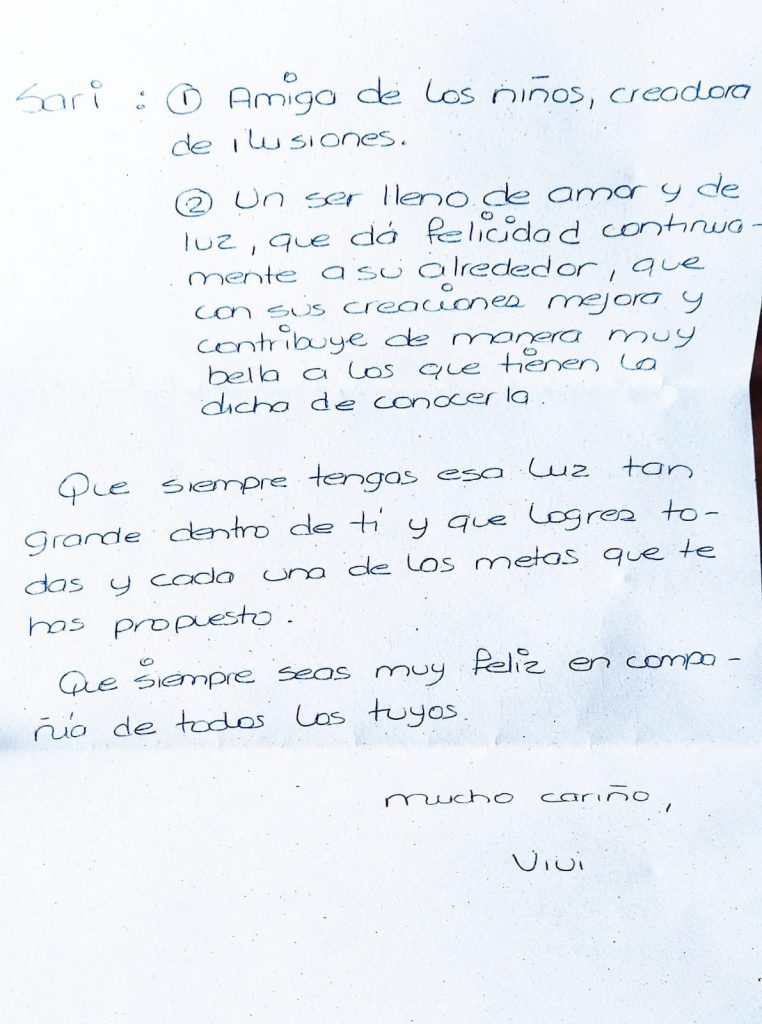 Sari : ① Amiga de los niños, creadora
de ilusiones.
② Un ser lleno de amor y de
luz, que dá felicidad continua-
mente a su alrededor, que
con sus creaciones mejora y
contribuye de manera muy
bella a los que tienen la
dicha de conocerla.
Que siempre tengas esa luz tan
grande dentro de tí y que logres to-
das y cada una de las metas que te
has propuesto.
Que siempre seas muy feliz en compa-
ñía de todos los tuyos.
Mucho cariño,
Vivi